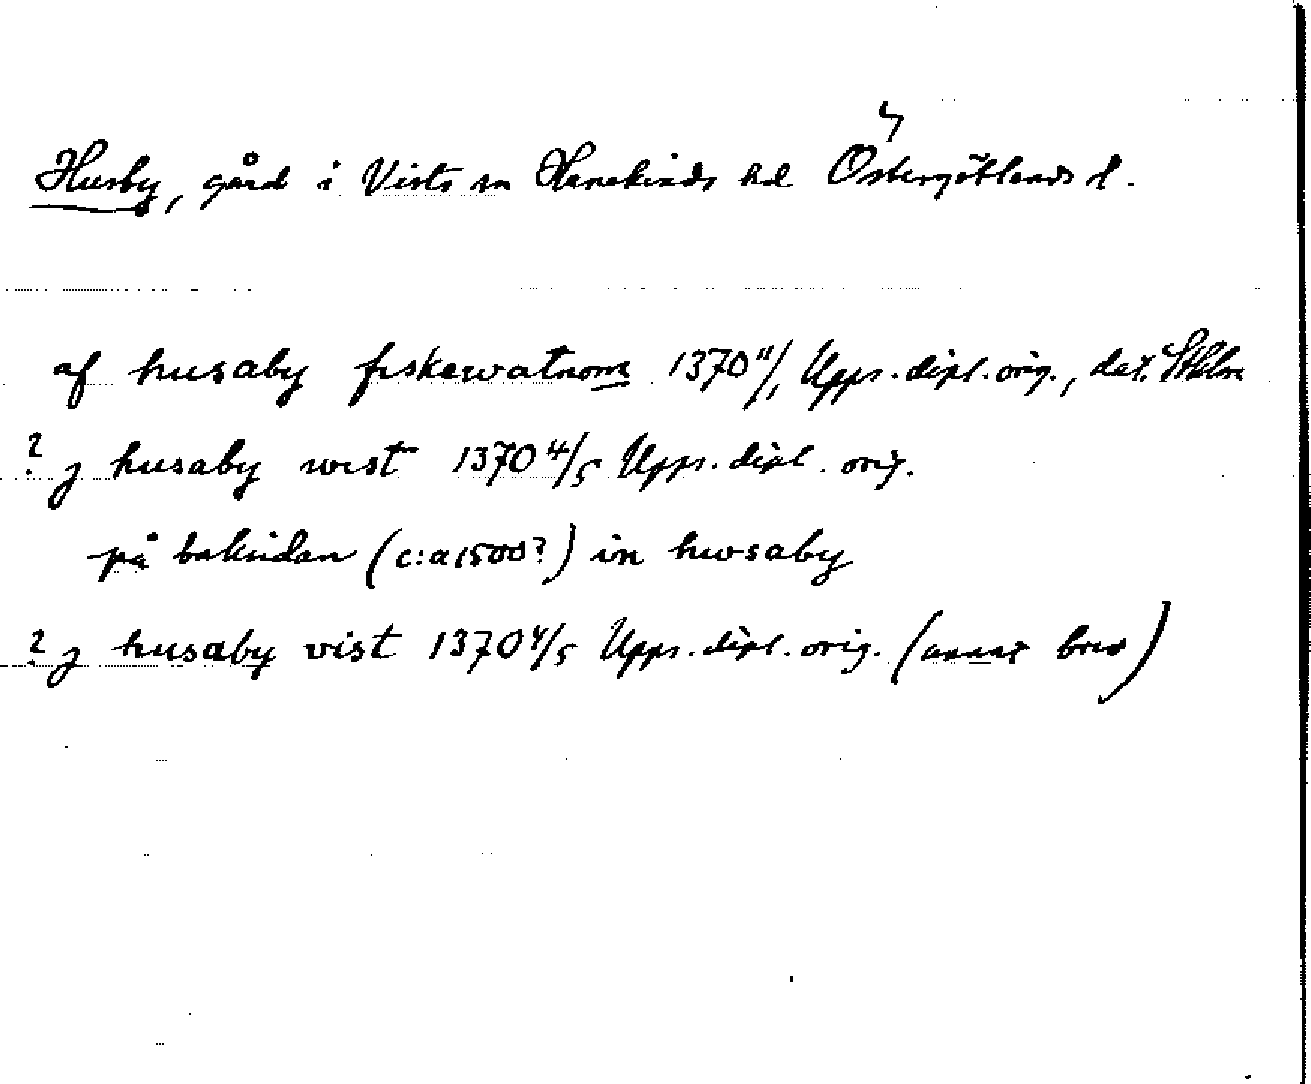 Husby, gård i Vists sn Hanekinds hd Östergötlands l.
af husaby fiskewatnom 1370 11/1 Upps. dipl. orig., dat. Sthlm
? j husaby wist 1370 4/5 Upps. dipl. orig.
på baksidan (c:a 1500?) in hwsaby
? j husaby vist 1370 4/5 Upps. dipl. orig. (annat brev)